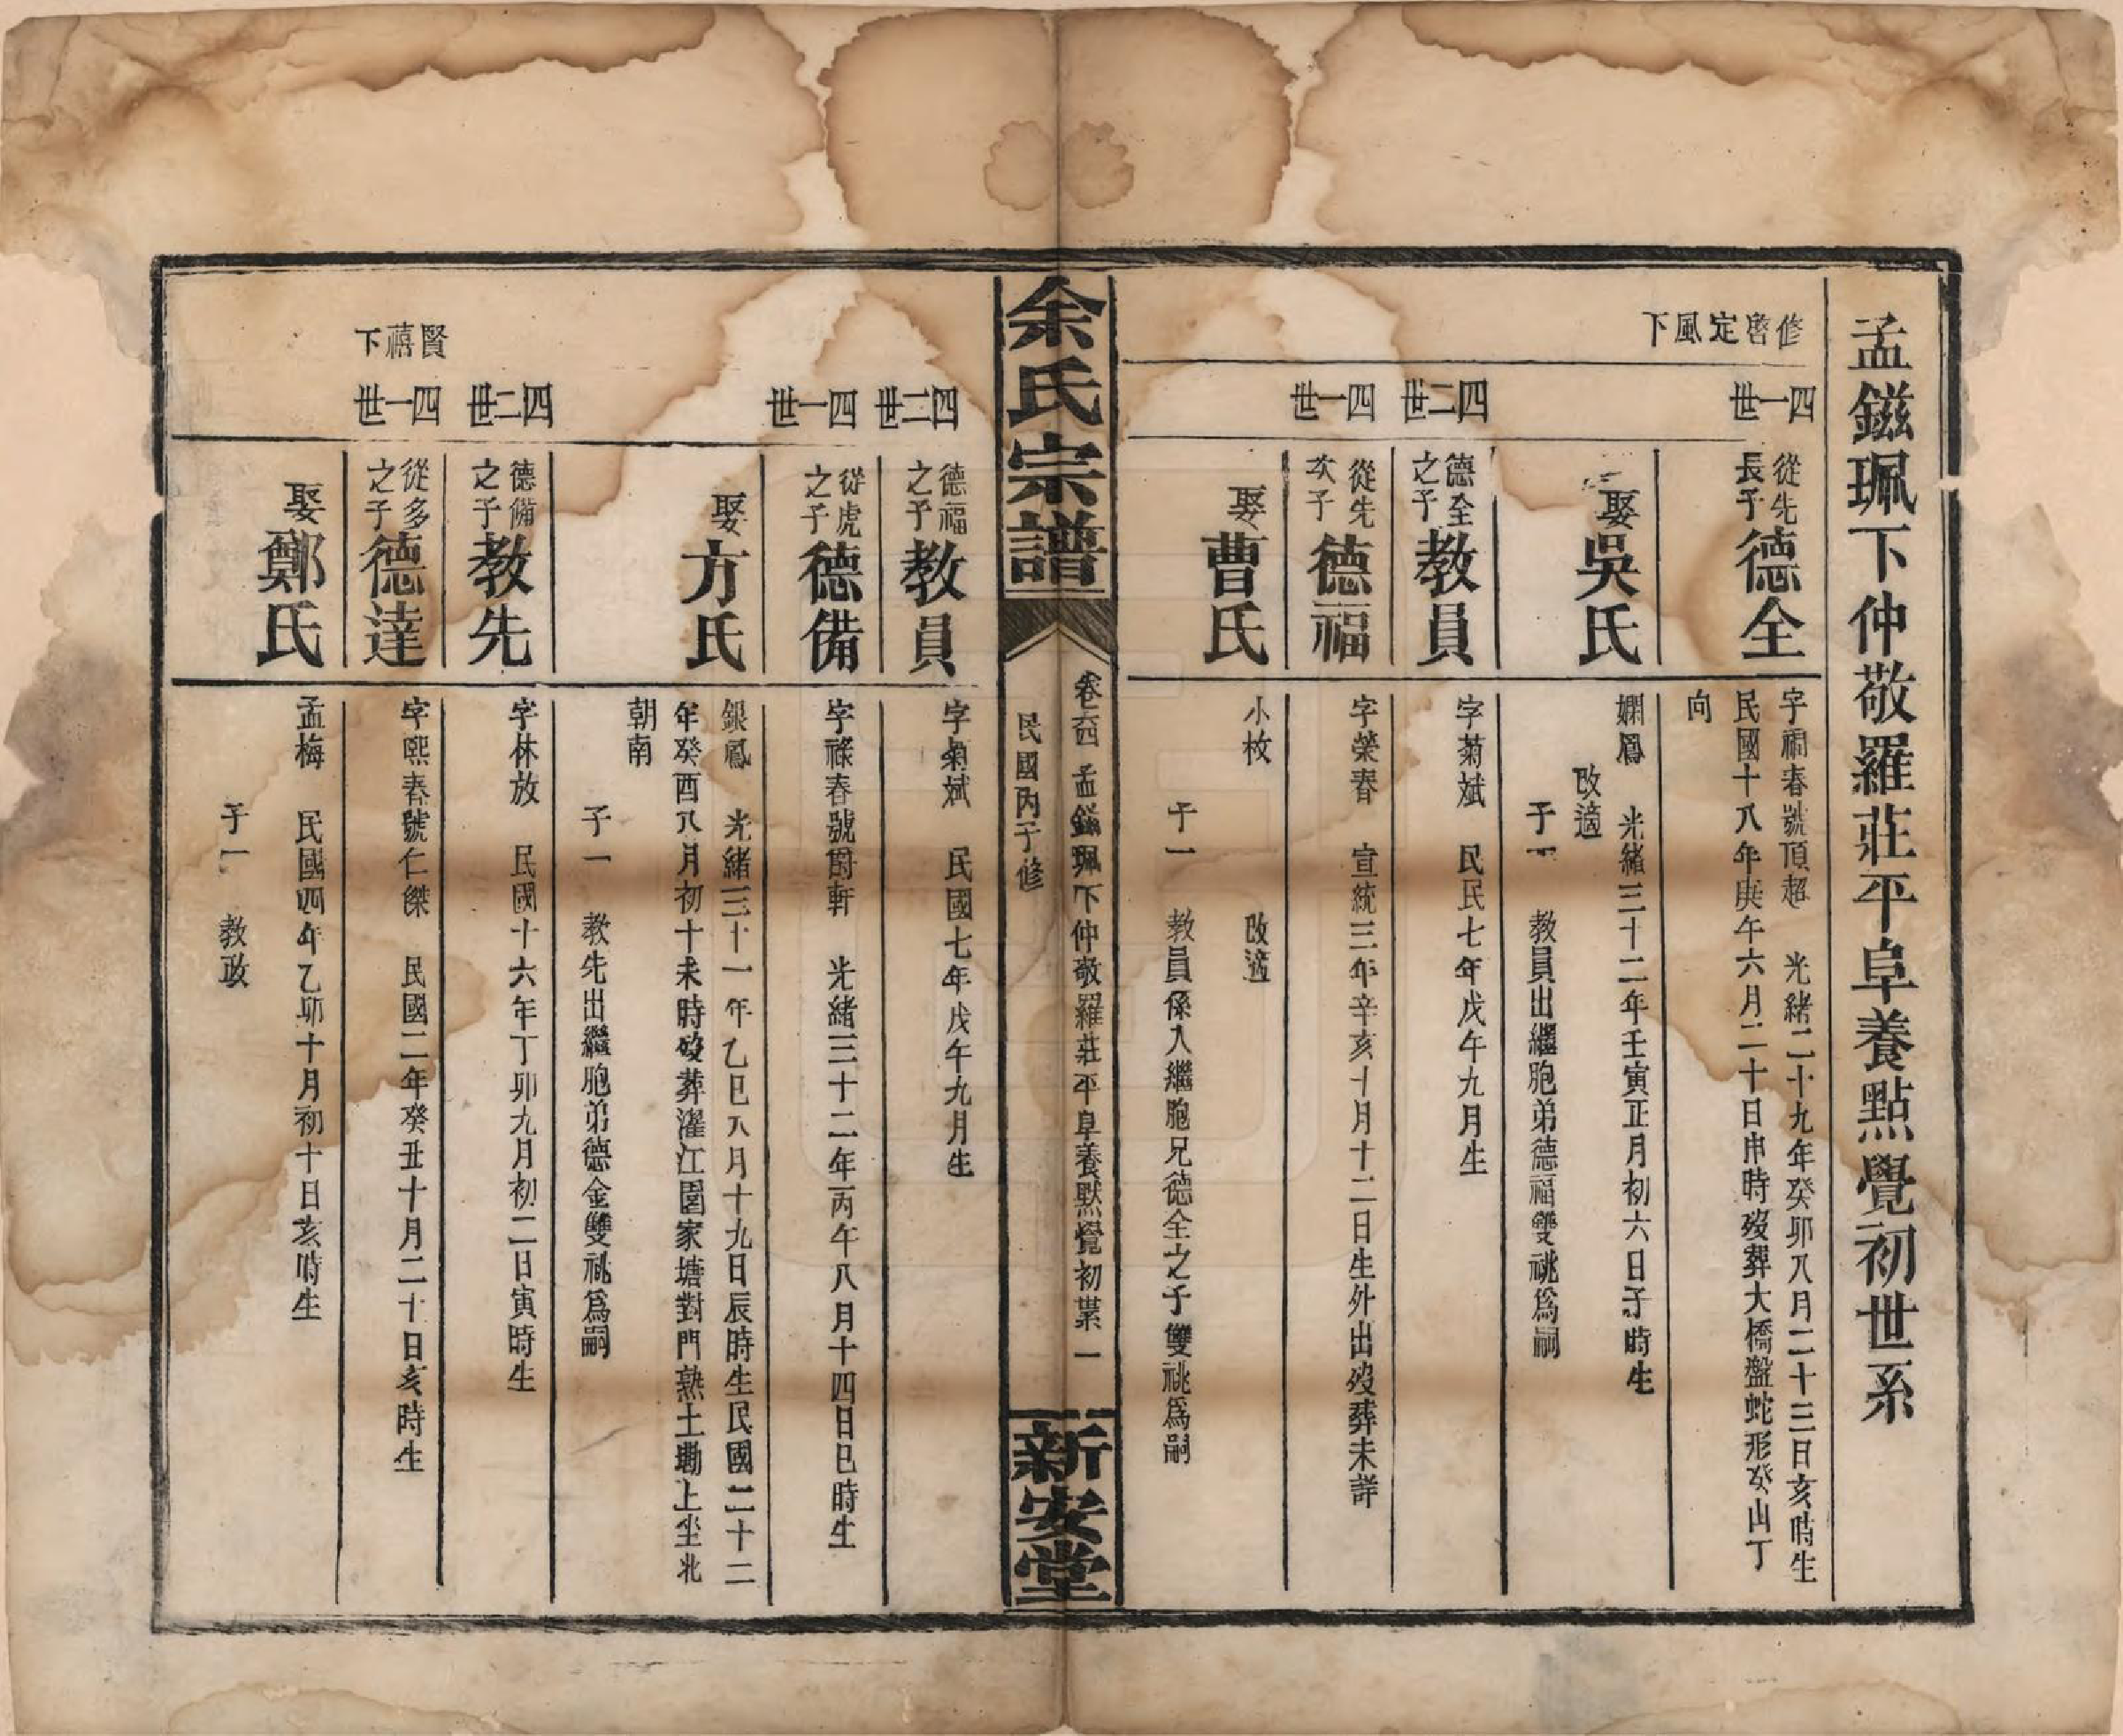 孟鎡珮下仲敬羅莊平阜養點覺初世系
修啓定風下
四一世
從先長子德全
字禑春號頂超　光緒二十九年癸卯八月二十三日亥時生
民國十八年庚午六月二十日申時歿葬大橋盤蛇形癸山丁
向
娶吳氏
嫻鳳　光緒三十二年壬寅正月初六日子時生
改適
子一　教員出繼胞弟德福雙祧爲嗣
四二世
德全之子教員
字菊斌　民民七年戊午九月生
四一世
從先次子德福
字榮春　宣統三年辛亥十月十二日生外出歿葬未詳
娶曹氏
小枚　改適
子一　教員係入繼胞兄德全之子雙祧爲嗣
余氏宗譜
卷六四　孟鎡珮下仲敬羅莊平阜養默覺初業　一
民國丙子修
新安堂
四二世
德福之子教員
字菊斌　民國七年戊午九月生
四一世
從虎之子德備
字祿春號爵軒　光緒三十二年丙午八月十四日巳時生
娶方氏
銀鳳　光緒三十一年乙巳八月十九日辰時生民國二十二
年癸酉八月初十未時歿葬濯江圍家塘對門熟土墈上坐北
朝南
子一　教先出繼胞弟德金雙祧爲嗣
四二世
德備之子教先
字林放　民國十六年丁卯九月初二日寅時生
賢禧下
四一世
從多之子德達
字熙春號仁傑　民國二年癸丑十月二十日亥時生
娶鄭氏
孟梅　民國四年乙卯十月初十日亥時生
子一　教政